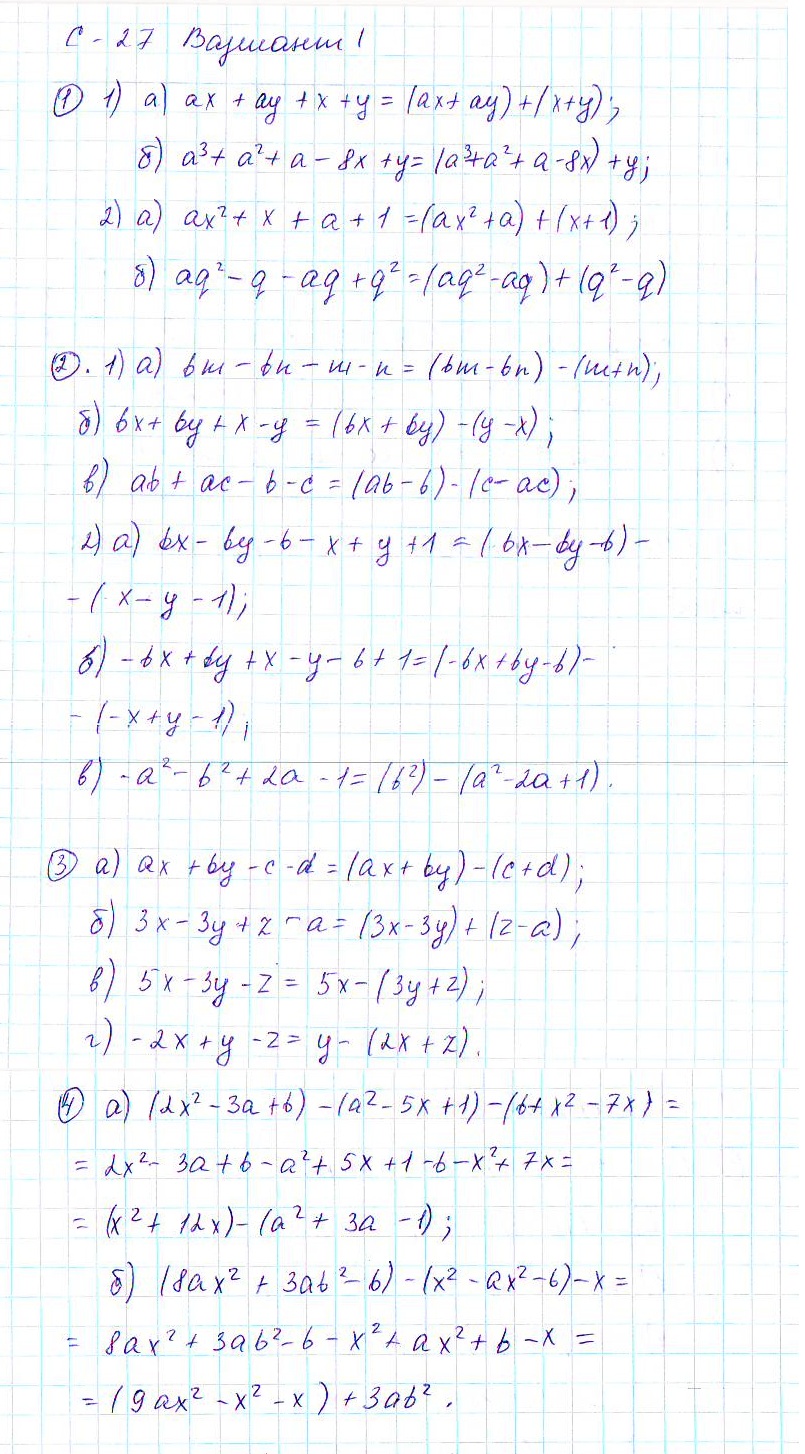 С-27 Вариант 1
① 1) а) ax + ay + x + y = (ax + ay) + (x+y);
б) a³ + a² + a - 8x + y = (a³+a²+a-8x) + y;
2) а) ax² + x + a + 1 = (ax²+a) + (x+1);
б) aq² - q - aq + q² = (aq²-aq) + (q²-q)
②. 1) а) bm - bn - m - n = (bm-bn) - (m+n);
б) bx + by + x - y = (bx + by) - (y-x);
в) ab + ac - b - c = (ab-b) - (c-ac);
2) а) bx - by - b - x + y + 1 = (bx-by-b) -
- (x-y-1);
б) -bx + by + x - y - b + 1 = (-bx+by-b) -
- (-x+y-1);
в) -a² - b² + 2a - 1 = (b²) - (a²-2a+1).
③ а) ax + by - c - d = (ax+by) - (c+d);
б) 3x - 3y + z - a = (3x-3y) + (z-a);
в) 5x - 3y - z = 5x - (3y+z);
г) -2x + y - z = y - (2x+z).
④ а) (2x² - 3a + b) - (a² - 5x + 1) - (b + x² - 7x) =
= 2x² - 3a + b - a² + 5x + 1 - b - x² + 7x =
= (x² + 12x) - (a² + 3a - 1);
б) (8ax² + 3ab² - b) - (x² - ax² - b) - x =
= 8ax² + 3ab² - b - x² + ax² + b - x =
= (9ax² - x² - x) + 3ab².